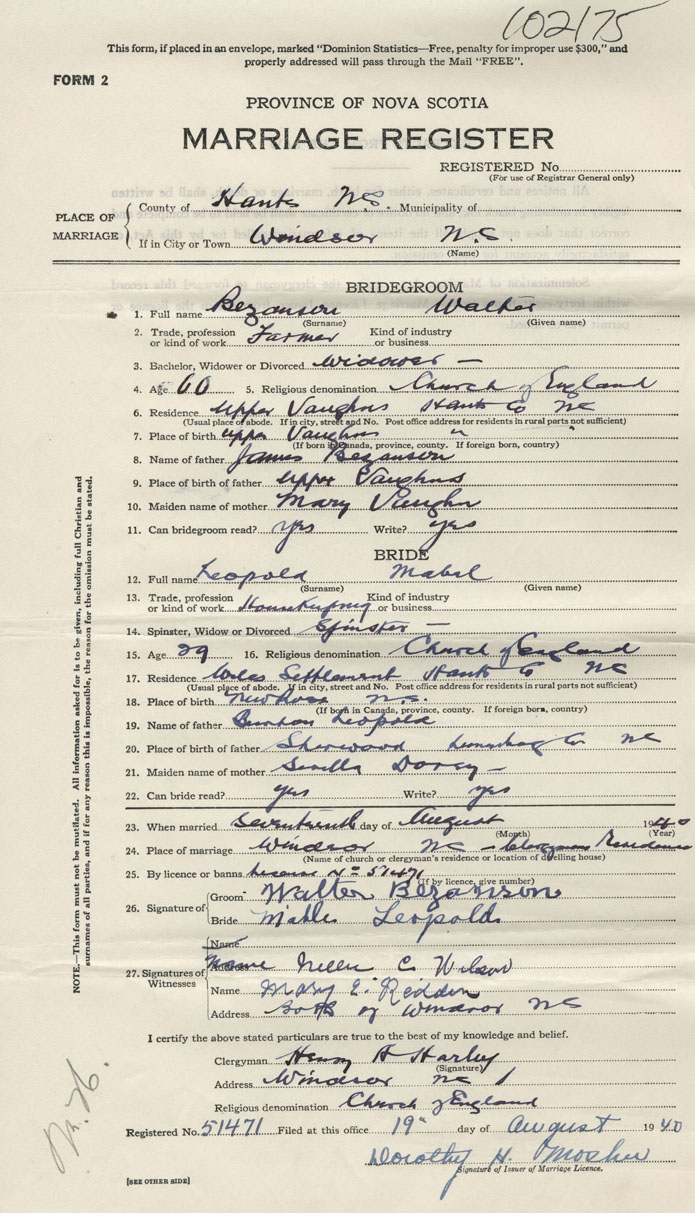 102175
This form, if placed in an envelope, marked "Dominion Statistics—Free, penalty for improper use $300," and
properly addressed will pass through the Mail "FREE".
FORM 2
PROVINCE OF NOVA SCOTIA
MARRIAGE REGISTER
REGISTERED No.
(For use of Registrar General only)
PLACE OF MARRIAGE
County of Hants N.S. Municipality of
If in City or Town Windsor N.S.
(Name)
BRIDEGROOM
1. Full name Bezanson Walter
(Surname) (Given name)
2. Trade, profession or kind of work Farmer Kind of industry or business
3. Bachelor, Widower or Divorced Widower —
4. Age 60 5. Religious denomination Church of England
6. Residence Upper Vaughns Hants Co NS
(Usual place of abode. If in city, street and No. Post office address for residents in rural parts not sufficient)
7. Place of birth Upper Vaughns "
(If born in Canada, province, county. If foreign born, country)
8. Name of father James Bezanson
9. Place of birth of father Upper Vaughns
10. Maiden name of mother Mary Vaughn
11. Can bridegroom read? yes Write? yes
BRIDE
12. Full name Leopold Mabel
(Surname) (Given name)
13. Trade, profession or kind of work Housekeeping Kind of industry or business
14. Spinster, Widow or Divorced Spinster —
15. Age 29 16. Religious denomination Church of England
17. Residence Wiles Settlement Hants Co NS
(Usual place of abode. If in city, street and No. Post office address for residents in rural parts not sufficient)
18. Place of birth New Ross N.S.
(If born in Canada, province, county. If foreign born, country)
19. Name of father Leopold
20. Place of birth of father Sherwood Lunenburg Co NS
21. Maiden name of mother Dorey —
22. Can bride read? yes Write? yes
23. When married Seventeenth day of August 1940
(Month) (Year)
24. Place of marriage Windsor NS — Clergymans Residence
(Name of church or clergyman's residence or location of dwelling house)
25. By licence or banns licence No 51471
(If by licence, give number)
26. Signature of
Groom Walter Bezanson
Bride Leopold
27. Signatures of Witnesses
Name
Address
Name C. Wilson
Name Mary E. Redden
Address Both of Windsor NS
I certify the above stated particulars are true to the best of my knowledge and belief.
Clergyman Henry A Harley
(Signature)
Address Windsor NS
Religious denomination Church of England
Registered No. 51471 Filed at this office 19" day of August 1940
Dorothy H. Mosher
Signature of Issuer of Marriage Licence.
[SEE OTHER SIDE]
NOTE.—This form must not be mutilated. All information asked for is to be given, including full Christian and
surnames of all parties, and if for any reason this is impossible, the reason for the omission must be stated.